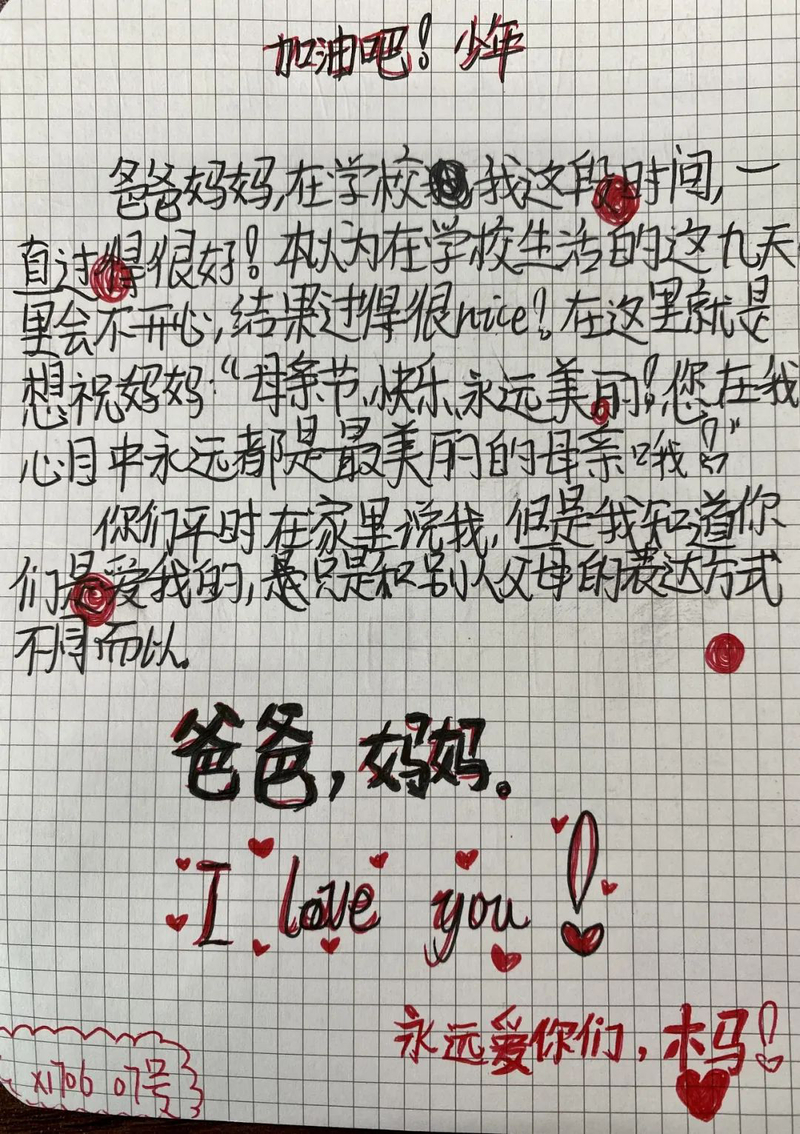 加油吧！少年
爸爸妈妈，在学校我这段时间，一
直过得很好！本以为在学校生活的这九天
里会不开心，结果过得很nice！在这里就是
想祝妈妈：“母亲节快乐，永远美丽！您在我
心目中永远都是最美丽的母亲哦！”
你们平时在家里说我，但是我知道你
们是爱我的，是只是和别人父母的表达方式
不同而以。
爸爸，妈妈。
I love you！
永远爱你们，木马！
x1706 07号